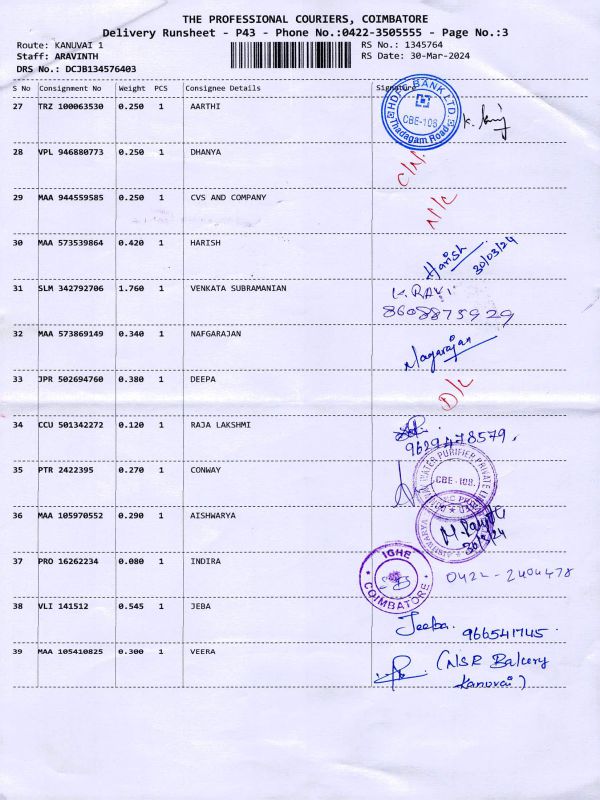 THE PROFESSIONAL COURIERS, COIMBATORE
Delivery Runsheet - P43 - Phone No.:0422-3505555 - Page No.:3
Route: KANUVAI 1 RS No.: 1345764
Staff: ARAVINTH RS Date: 30-Mar-2024
DRS No.: DCJB134576403
S No Consignment No Weight PCS Consignee Details Signature
27 TRZ 100063530 0.250 1 AARTHI
HDFC BANK LTD.
CBE-108.
Thadagam Road
28 VPL 946880773 0.250 1 DHANYA
29 MAA 944559585 0.250 1 CVS AND COMPANY N/C
30 MAA 573539864 0.420 1 HARISH Harish 30/03/24
31 SLM 342792706 1.760 1 VENKATA SUBRAMANIAN K.RAVI
8608875929
32 MAA 573869149 0.340 1 NAFGARAJAN Nagarajan
33 JPR 502694760 0.380 1 DEEPA D/L
34 CCU 501342272 0.120 1 RAJA LAKSHMI
9629478579.
35 PTR 2422395 0.270 1 CONWAY
WATER PURIFIER PRIVATE
CBE-108.
36 MAA 105970552 0.290 1 AISHWARYA
30/3/24
37 PRO 16262234 0.080 1 INDIRA
IGHE
COIMBATORE
0422-2404478
38 VLI 141512 0.545 1 JEBA Jeeba. 966541745
39 MAA 105410825 0.300 1 VEERA (NSR Bakery
Kanuvai)